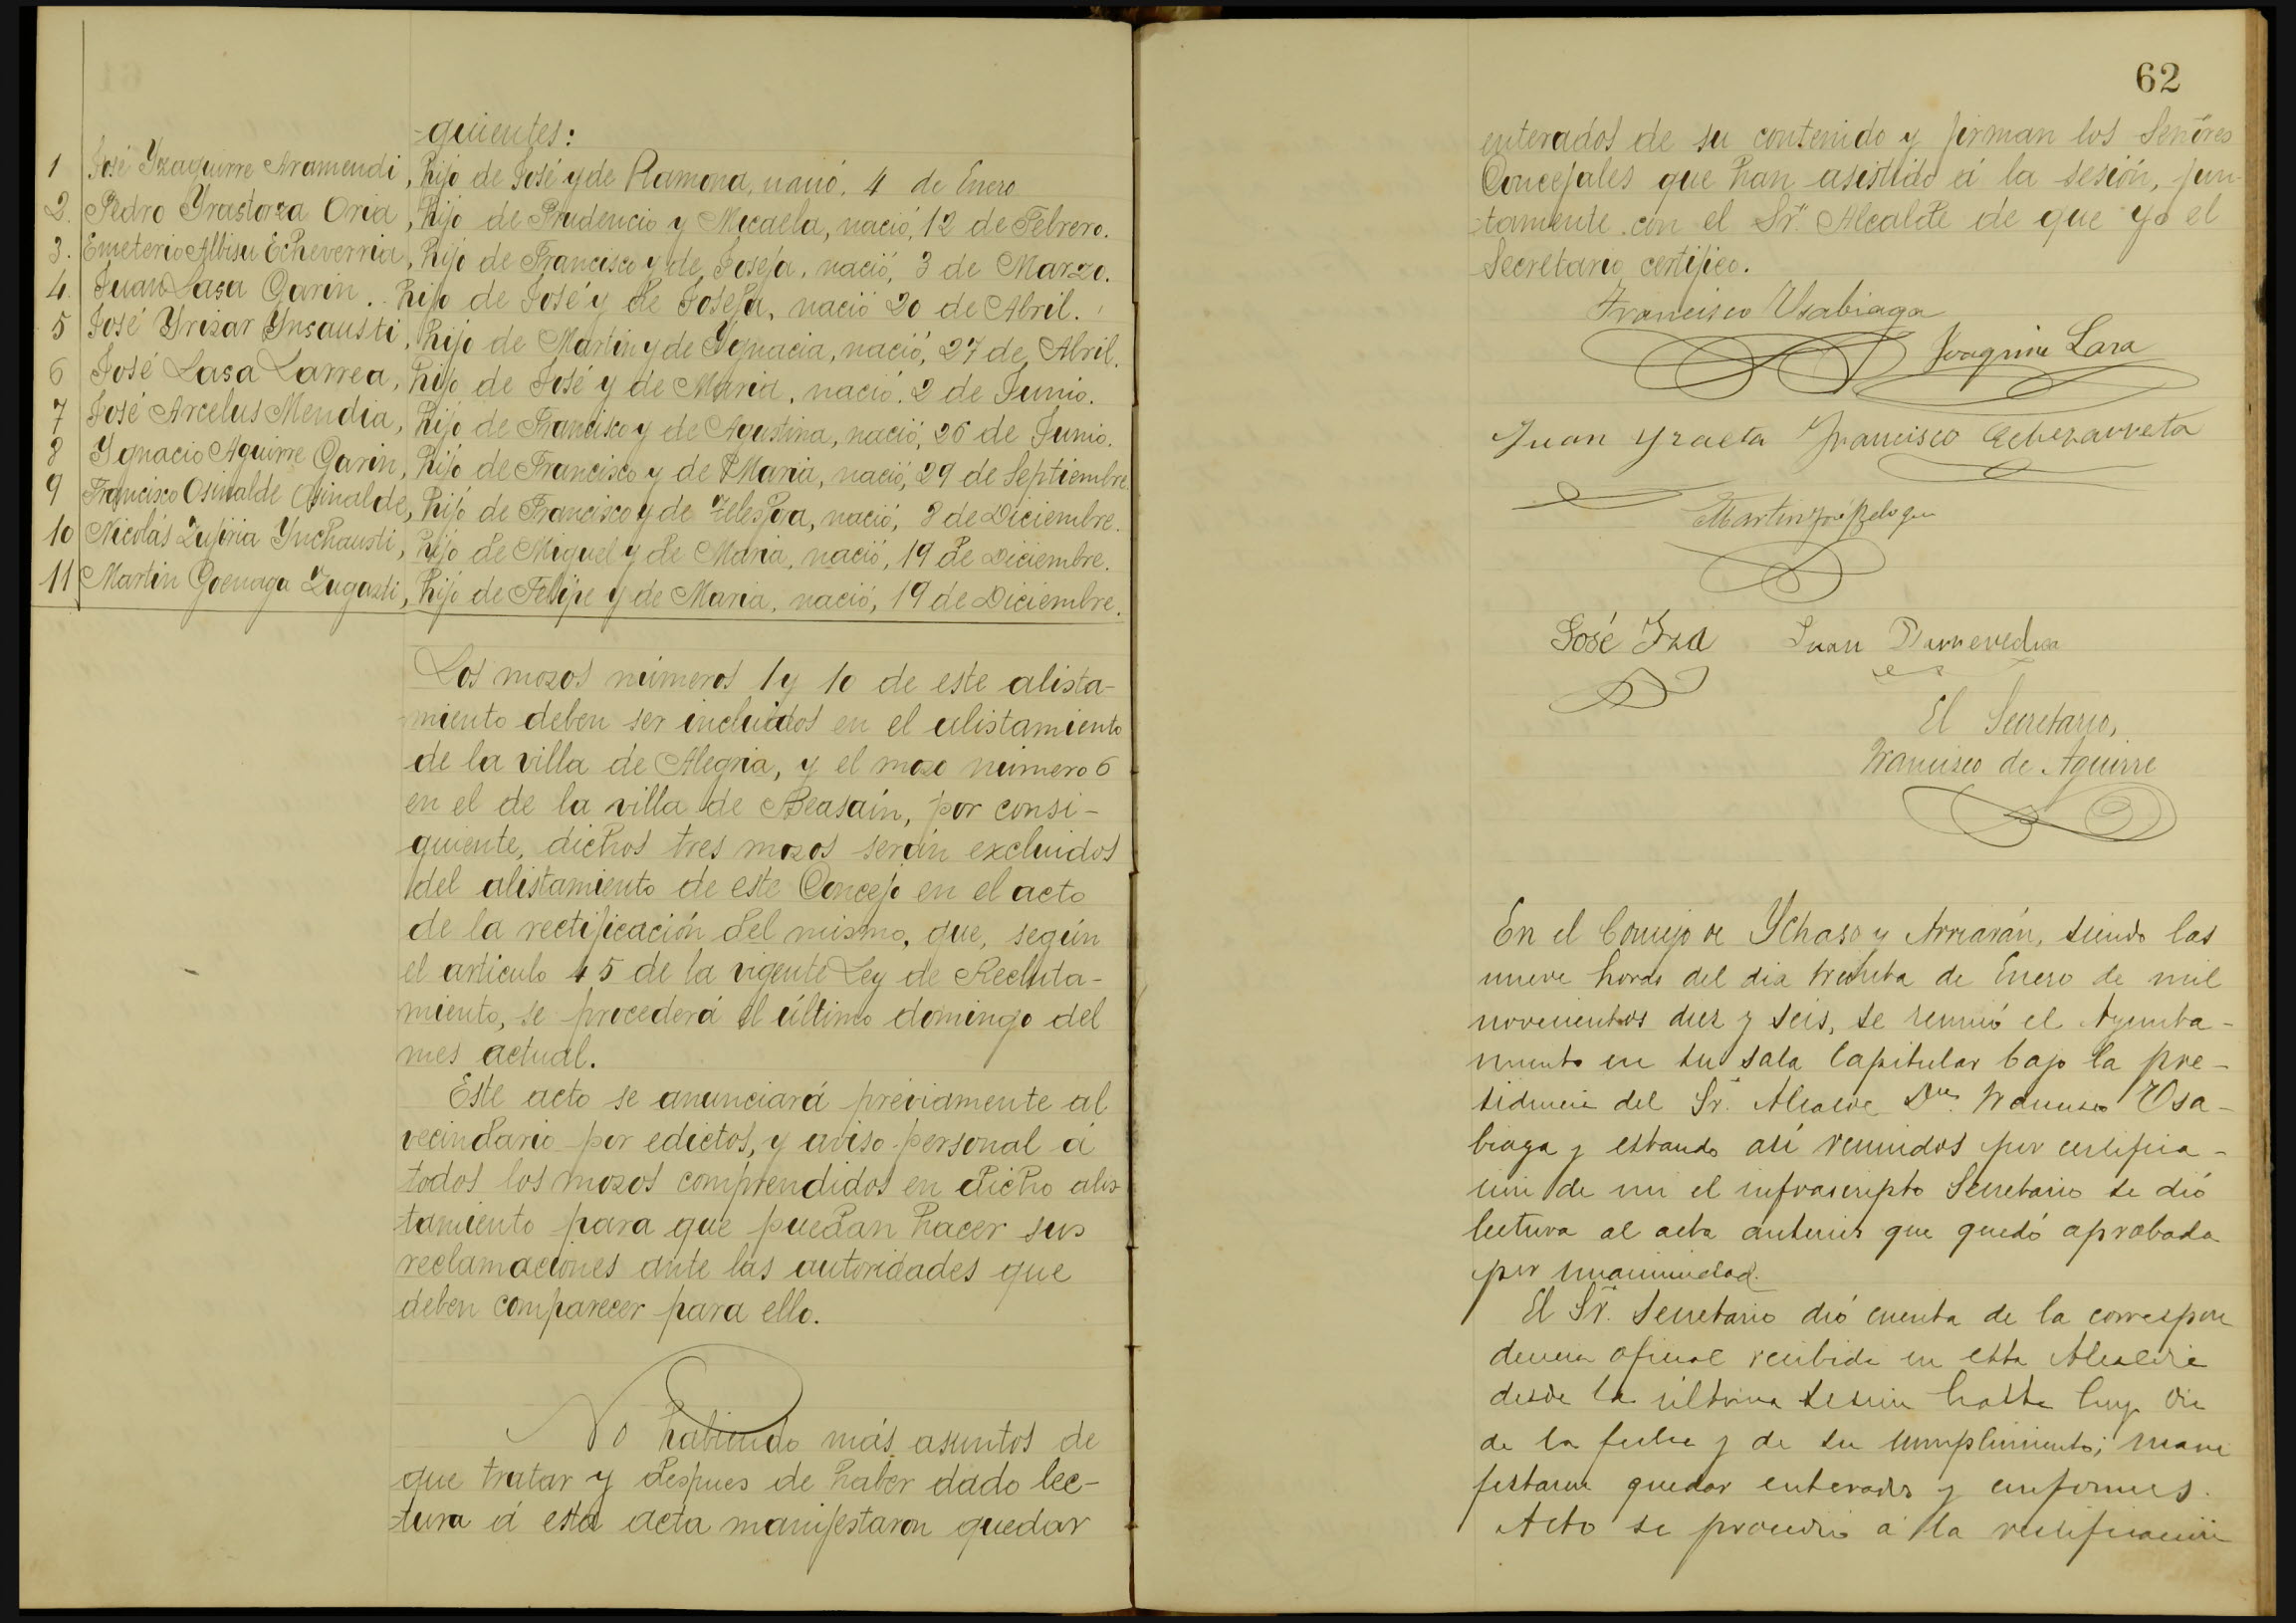 -guientes:
1 José Yzaguirre Aramendi, hijo de José y de Ramona, nació, 4 de Enero
2. Pedro Yrastorza Oria, hijo de Prudencio y Micaela, nació, 12 de Febrero.
3. Emeterio Albisu Echeverria, hijo de Francisco y de Josefa, nació, 3 de Marzo.
4. Juan Lasa Garin. hijo de José y de Josefa, nació 20 de Abril.
5 José Yrizar Ynsausti, hijo de Martin y de Ygnacia, nació, 27 de Abril.
6 José Lasa Larrea, hijo de José y de Maria, nació. 2 de Junio.
7 José Arcelus Mendia, hijo de Francisco y de Agustina, nació, 26 de Junio.
8 Ygnacio Aguirre Garin, hijo de Francisco y de Maria, nació, 29 de Septiembre.
9 Francisco Osinalde Osinalde, hijo de Francisco y de Telesfora, nació, 8 de Diciembre.
10 Nicolás Zufiria Ynchausti, hijo de Miguel y de Maria, nació, 19 de Diciembre.
11 Martin Goenaga Zugasti, hijo de Felipe y de Maria, nació, 19 de Diciembre.
Los mozos números 1 y 10 de este alista-
miento deben ser incluidos en el alistamiento
de la villa de Alegria, y el mozo número 6
en el de la villa de Beasain, por consi-
guiente, dichos tres mozos serán excluidos
del alistamiento de este Concejo en el acto
de la rectificación del mismo, que, según
el articulo 45 de la vigente Ley de Recluta-
miento, se procederá el último domingo del
mes actual.
Este acto se anunciará préviamente al
vecindario por edictos, y aviso personal á
todos los mozos comprendidos en dicho alis
tamiento para que puedan hacer sus
reclamaciones ante las autoridades que
deben comparecer para ello.
No habiendo más asuntos de
que tratar y despues de haber dado lec-
-tura á esta acta manifestaron quedar
62
enterados de su contenido y firman los Señores
Concejales que han asistido á la sesión, jun-
-tamente con el Sr. Alcalde de que yo el
Secretario certifico.
Francisco Usabiaga
Joaquin Lasa
Juan Yraeta Francisco Echezarreta
Martin José
José Iza Juan
El Secretario,
Francisco de Aguirre
En el Concejo de Ychaso y Arriarán, siendo las
nueve horas del dia treinta de Enero de mil
novecientos diez y seis, se reunió el Ayunta-
miento en su sala Capitular bajo la pre-
sidencia del Sr. Alcalde Dn. Francisco Usa-
biaga y estando asi reunidos por certifica-
ción de mi el infrascripto Secretario se dió
lectura al acta anterior que quedó aprobada
por unanimidad.
El Sr. Secretario dió cuenta de la correspon
dencia oficial recibida en esta Alcaldia
desde la última sesión hasta hoy dia
de la fecha y de su cumplimiento; mani
festaron quedar enterados y conformes.
Acto se procedió a la rectificación